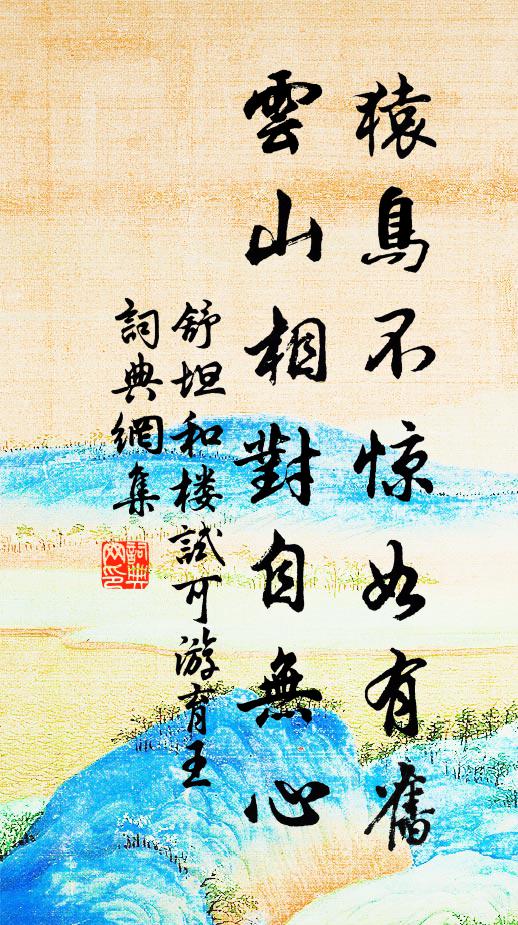 猿鳥不惊如有舊
雲山相對自無心
舒坦和楼試可游育王
詞典網集
詞典
网印